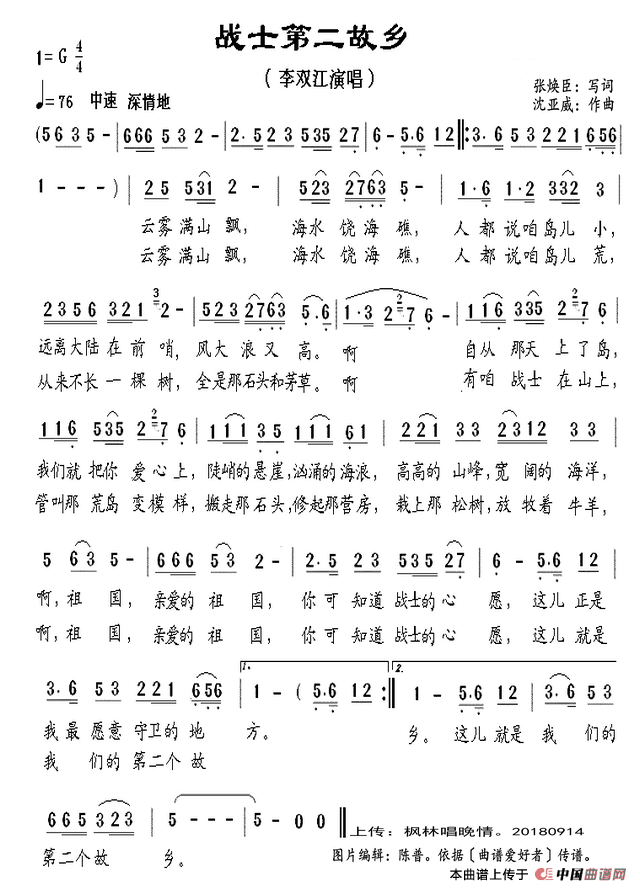 战士第二故乡
1=G 4/4
（李双江演唱）
♩=76 中速 深情地
张焕臣：写词
沈亚威：作曲
(5 6 3 5 | 6 6 6 5 3 5 - | 2·5 2 3 5 3 5 2 7 | 6 - 5·6 1 2 ‖: 3·6 5 3 2 2 1 6 5 6 |
1 - - -) | 2 5 5 3 1 2 - | 5 2 3 2 7 6 3 5 - | 1·6 1·2 3 3 2 3 |
云雾满山飘， 海水饶海礁， 人都说咱岛儿小，
云雾满山飘， 海水饶海礁， 人都说咱岛儿荒，
2 3 5 6 3 2 1 3 2 - | 5 2 3 2 7 6 3 5·6 | 1·3 2 2·7 6 - | 1 1 6 3 3 5 2 2·7 6 |
远离大陆在前哨，风大浪又高。啊 自从那天上了岛，
从来不长一棵树，全是那石头和茅草。啊 有咱战士在山上，
1 1 6 5 3 5 2 2·7 6 | 1 1 1 3·3 5 3 5 1 6 1 | 2 2 1 3 5 2 3 1 2 3 2 |
我们就把你爱心上，陡峭的悬崖，汹涌的海浪，高高的山峰，宽阔的海洋，
管叫那荒岛变模样，搬走那石头，修起那营房，栽上那松树，放牧着牛羊，
5 6 3 5 - | 6 6 6 5 3 2 - | 2·5 2 3 5 3 5 2 7 | 6 - 5·6 1 2 |
啊，祖国，亲爱的祖国，你可知道战士的心愿，这儿正是
啊，祖国，亲爱的祖国，你可知道战士的心愿，这儿就是
3·6 5 3 2 2 1 6 5 6 | 1. 1 - (5·6 1 2 :‖ 2. 1 - 5·6 1 2 | 3·6 5 3
我最愿意守卫的地方。 乡。这儿就是我们的
我们的第二个故
6 6 5 3 2 3 | 5 - - - | 5 - 0 0 ‖
第二个故乡。
上传：枫林唱晚情。20180914
图片编辑：陈普。依据〔曲谱爱好者〕传谱。
本曲谱上传于 中国曲谱网